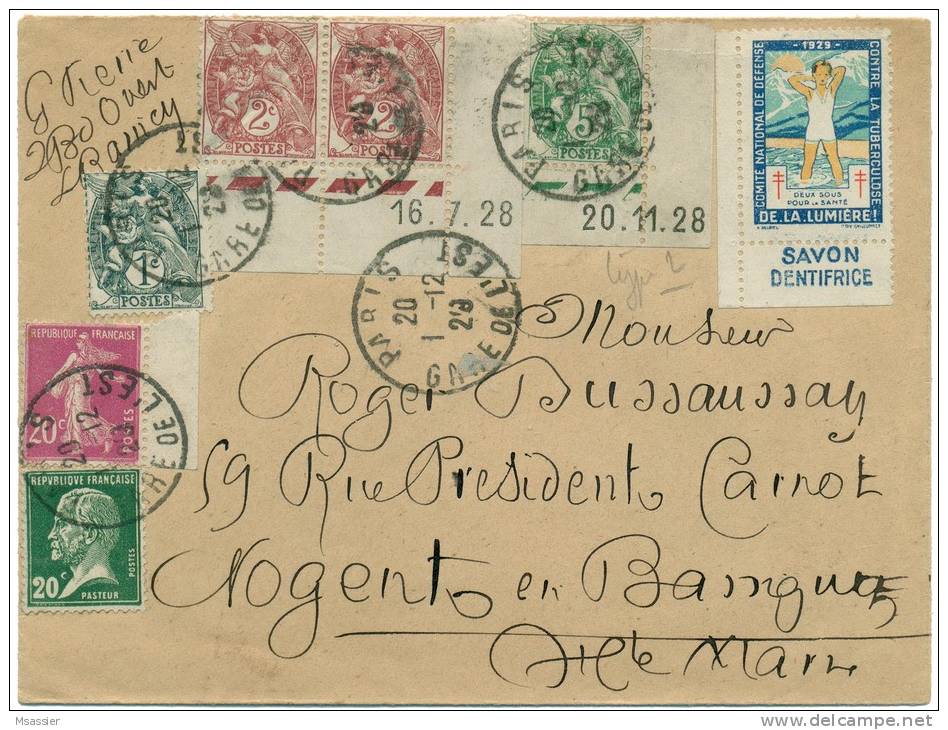 2c
POSTES
2c
POSTES
5
POSTES
16.7.28
20.11.28
1929
COMITÉ NATIONAL DE DÉFENSE
CONTRE LA TUBERCULOSE
DEUX SOUS
POUR LA SANTÉ
DE.LA.LUMIÈRE!
SAVON
DENTIFRICE
1c
POSTES
PARIS
GARE DE L'EST
20
1 -12
29
type 2
REPUBLIQUE FRANÇAISE
20c
POSTES
REPUBLIQUE FRANÇAISE
20c
POSTES
PASTEUR
Monsieur
Roger Bussaussay
59 Rue President Carnot
Nogent en Bassigny
Hte Marne
Msassier
www.delcampe.net